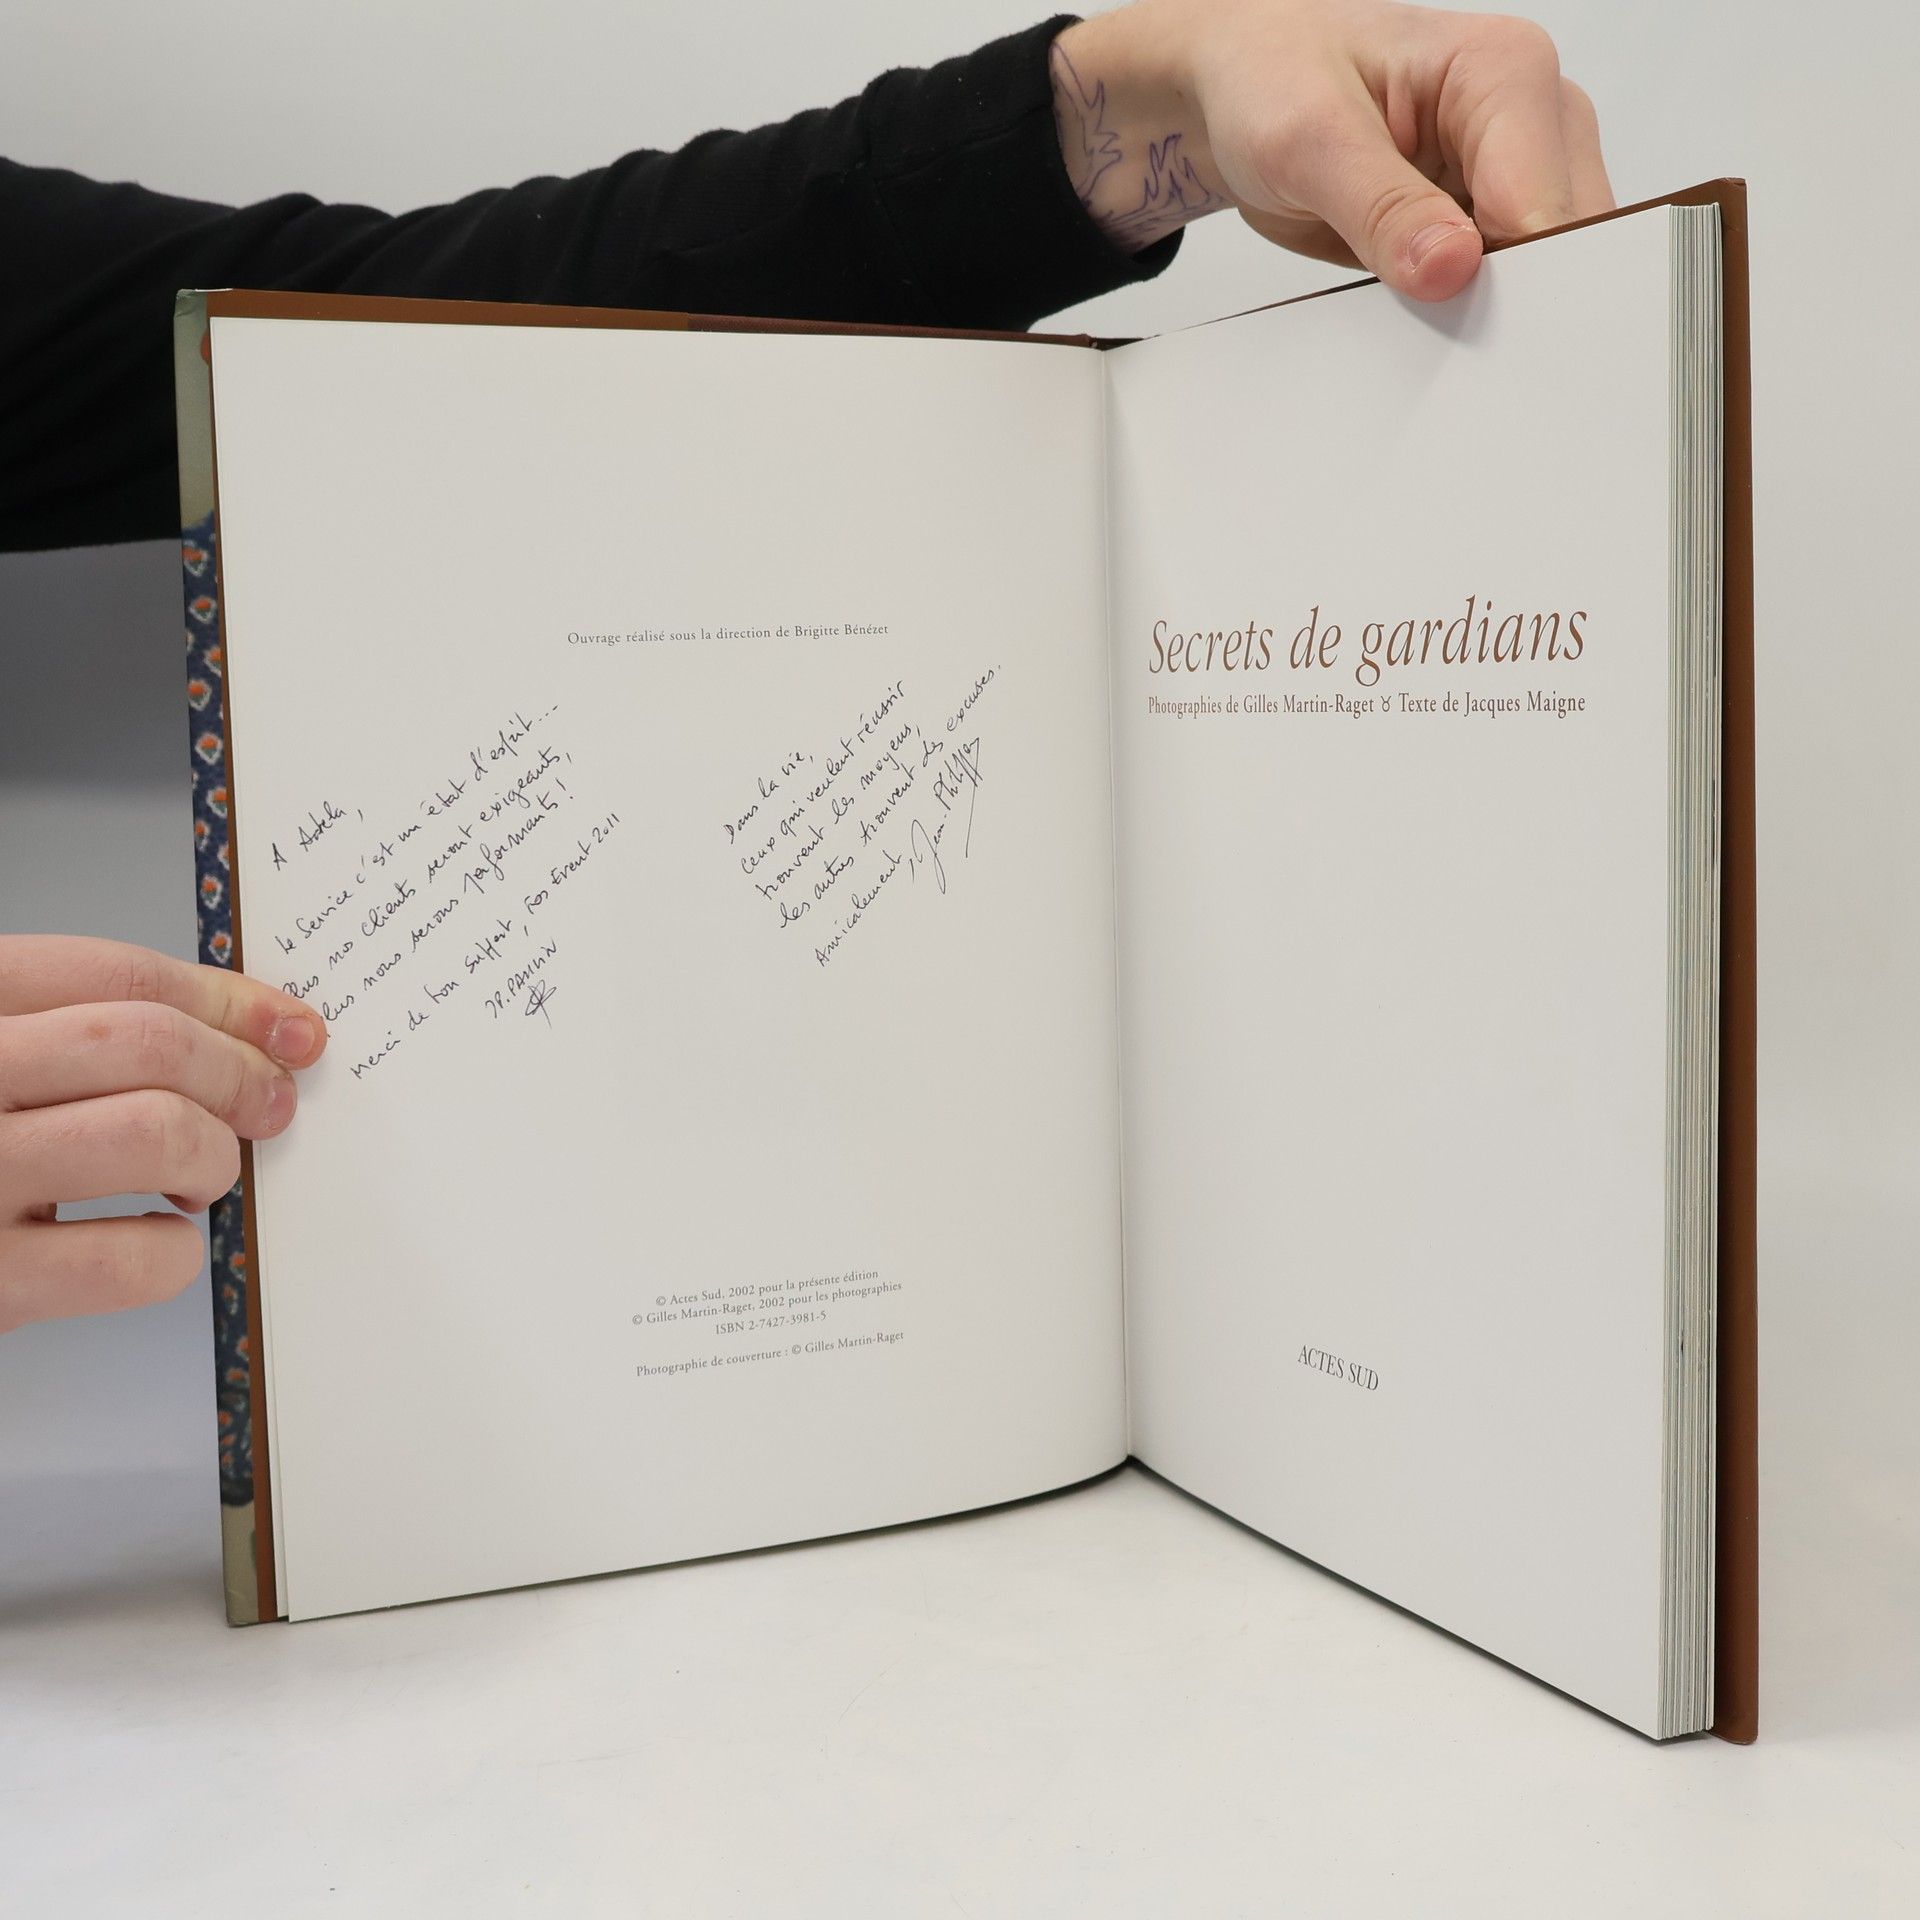 Ouvrage réalisé sous la direction de Brigitte Bénézet
A
Le Service c'est un état d'esprit...
Plus nos clients seront exigeants,
Plus nous serons performants !
Merci de ton support, Event 2011
Dans la vie,
Ceux qui veulent réussir
trouvent les moyens,
les autres trouvent des excuses.
Amicalement, Jean-Philippe
© Actes Sud, 2002 pour la présente édition
© Gilles Martin-Raget, 2002 pour les photographies
ISBN 2-7427-3981-5
Photographie de couverture : © Gilles Martin-Raget
Secrets de gardians
Photographies de Gilles Martin-Raget ♉ Texte de Jacques Maigne
ACTES SUD